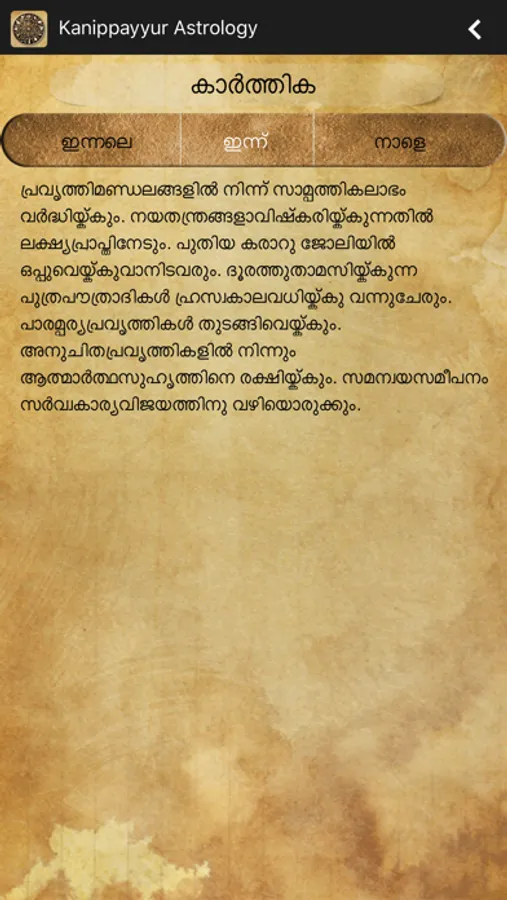 Kanippayyur Astrology
കാർത്തിക
ഇന്നലെ ഇന്ന് നാളെ
പ്രവൃത്തിമണ്ഡലങ്ങളിൽ നിന്ന് സാമ്പത്തികലാഭം
വർദ്ധിയ്ക്കും. നയതന്ത്രങ്ങളാവിഷ്കരിയ്ക്കുന്നതിൽ
ലക്ഷ്യപ്രാപ്തിനേടും. പുതിയ കരാറു ജോലിയിൽ
ഒപ്പുവെയ്ക്കുവാനിടവരും. ദൂരത്തുതാമസിയ്ക്കുന്ന
പുത്രപൗത്രാദികൾ ഹ്രസ്വകാലവധിയ്ക്കു വന്നുചേരും.
പാരമ്പര്യപ്രവൃത്തികൾ തുടങ്ങിവെയ്ക്കും.
അനുചിതപ്രവൃത്തികളിൽ നിന്നും
ആത്മാർത്ഥസുഹൃത്തിനെ രക്ഷിയ്ക്കും. സമന്വയസമീപനം
സർവ്വകാര്യവിജയത്തിനു വഴിയൊരുക്കും.